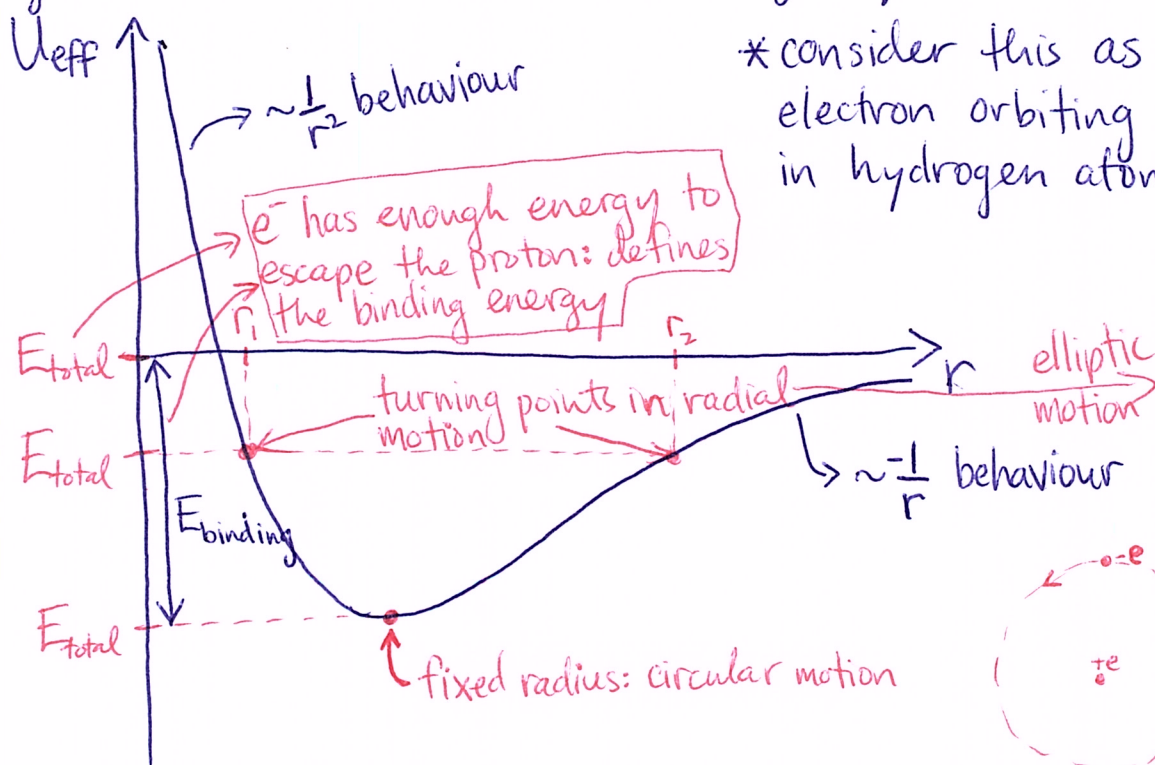 Ueff
~1/r² behaviour
*consider this as
electron orbiting
in hydrogen atom
e⁻ has enough energy to
escape the proton: defines
the binding energy
r₁
r₂
Etotal
r
elliptic
motion
turning points in radial
motion
Etotal
~-1/r behaviour
Ebinding
Etotal
fixed radius: circular motion
-e
+e